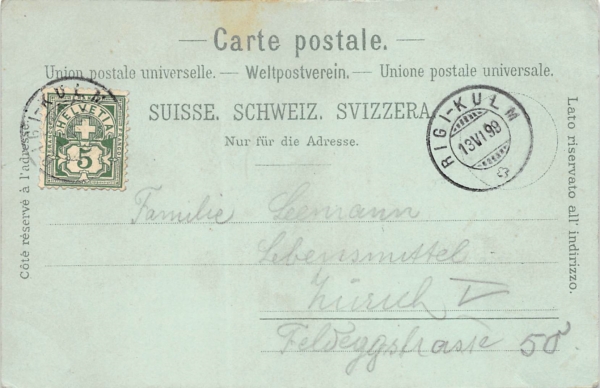 — Carte postale. —
Union postale universelle. — Weltpostverein. — Unione postale universale.
SUISSE. SCHWEIZ. SVIZZERA.
Nur für die Adresse.
Côté réservé à l'adresse.
Lato riservato all' indirizzo.
RIGI-KULM
HELVETIA
5
RIGI-KULM
13 VI 99
Familie Seemann
Lebensmittel
Zürich V
Feldeggstrasse 50